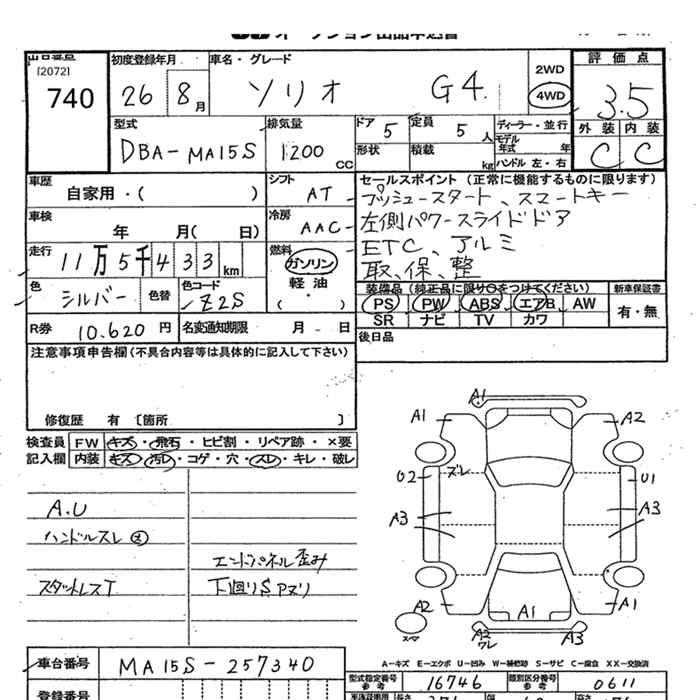 オークション出品申込書
出品番号
[2072]
740
初度登録年月
26 8月
車名・グレード
ソリオ G4
2WD
4WD
評価点
3.5
外装 内装
C C
型式
DBA-MA15S
排気量
1200 CC
ドア 5
定員 5人
形状 積載 kg
ディーラー・並行
モデル年式 年
ハンドル 左・右
車歴
自家用・( )
シフト
AT
セールスポイント (正常に機能するものに限ります)
プッシュースタート、スマートキー
左側パワースライドドア
ETC、アルミ
取、保、整
車検
年 月( 日)
冷房
AAC
走行
11万5千433km
燃料
ガソリン
軽油
( ・ )
色
シルバー
色替
色コード
Z2S
装備品 (純正品に限り○をつけてください)
新車保証書
PS PW ABS エアB AW
有・無
SR ナビ TV カワ
R券 10.620 円
名変通知期限 月 日
後日品
注意事項申告欄(不具合内容等は具体的に記入して下さい)
修復歴 有 〔箇所 〕
検査員記入欄
FW キズ・飛石・ヒビ割・リペア跡・×要
内装 キズ・汚レ・コゲ・穴・スレ・キレ・破レ
A.U
ハンドルスレ
スタットレスT
エンドパネル歪み
下廻りSPヌリ
A1
A1 A2
ズレ
U2 U1
A3 A3
A2 A1 A1
A2 ワレ A3
A-キズ E-エクボ U-凹み W-補修跡 S-サビ C-腐食 XX-交換済
車台番号
MA15S-257340
型式指定番号 参考 16746
類別区分番号 参考 0611
登録番号
車検証明用
長さ